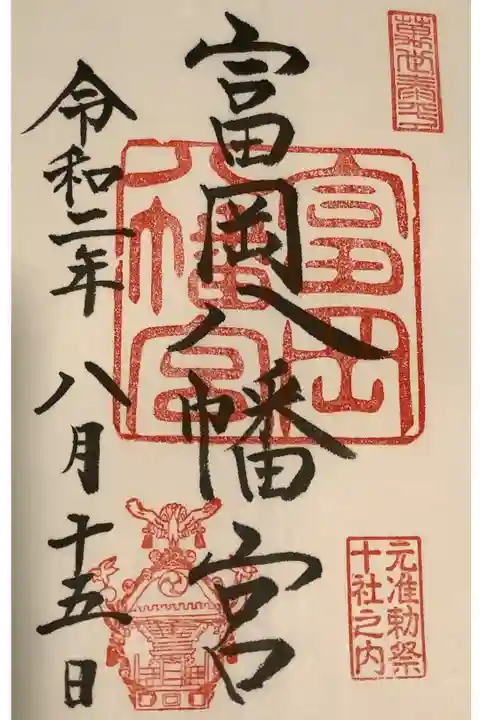 萬世泰平
富岡八幡宮
富岡八幡宮
元准勅祭
十社之内
令和二年 八月 十五日